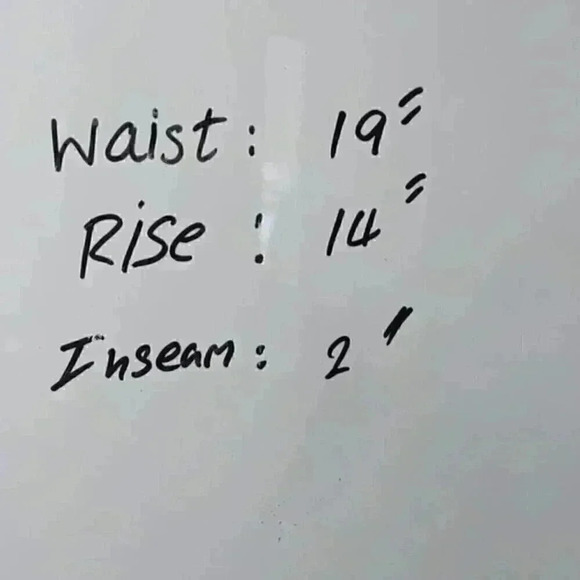 Waist: 19"
Rise: 14"
Inseam: 2"